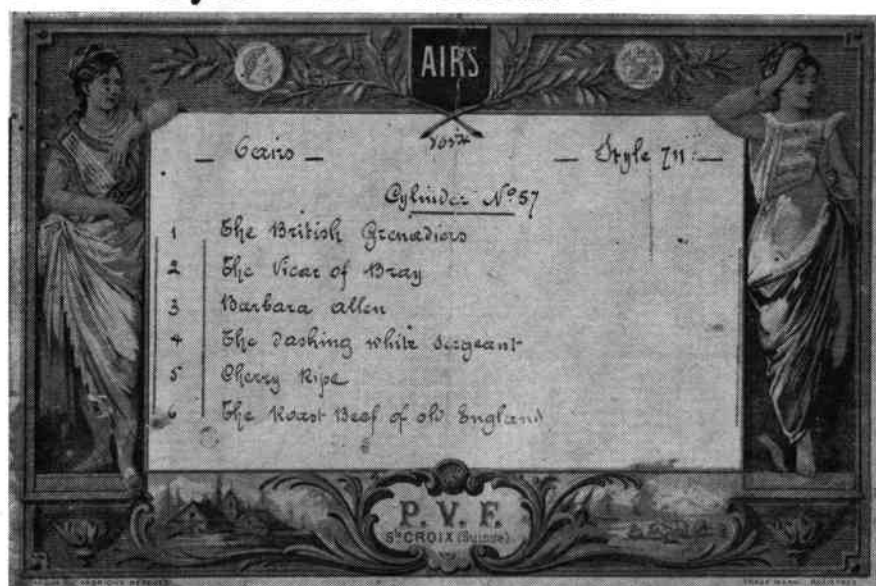 AIRS
6 airs
Style 711
Cylinder Nº 57
1 The British Grenadiers
2 The Vicar of Bray
3 Barbara allen
4 The Dashing white sergeant
5 Cherry Ripe
6 The Roast Beef of old England
P. V. F.
Ste CROIX (Suisse)
TRADE MARK REGISTERED